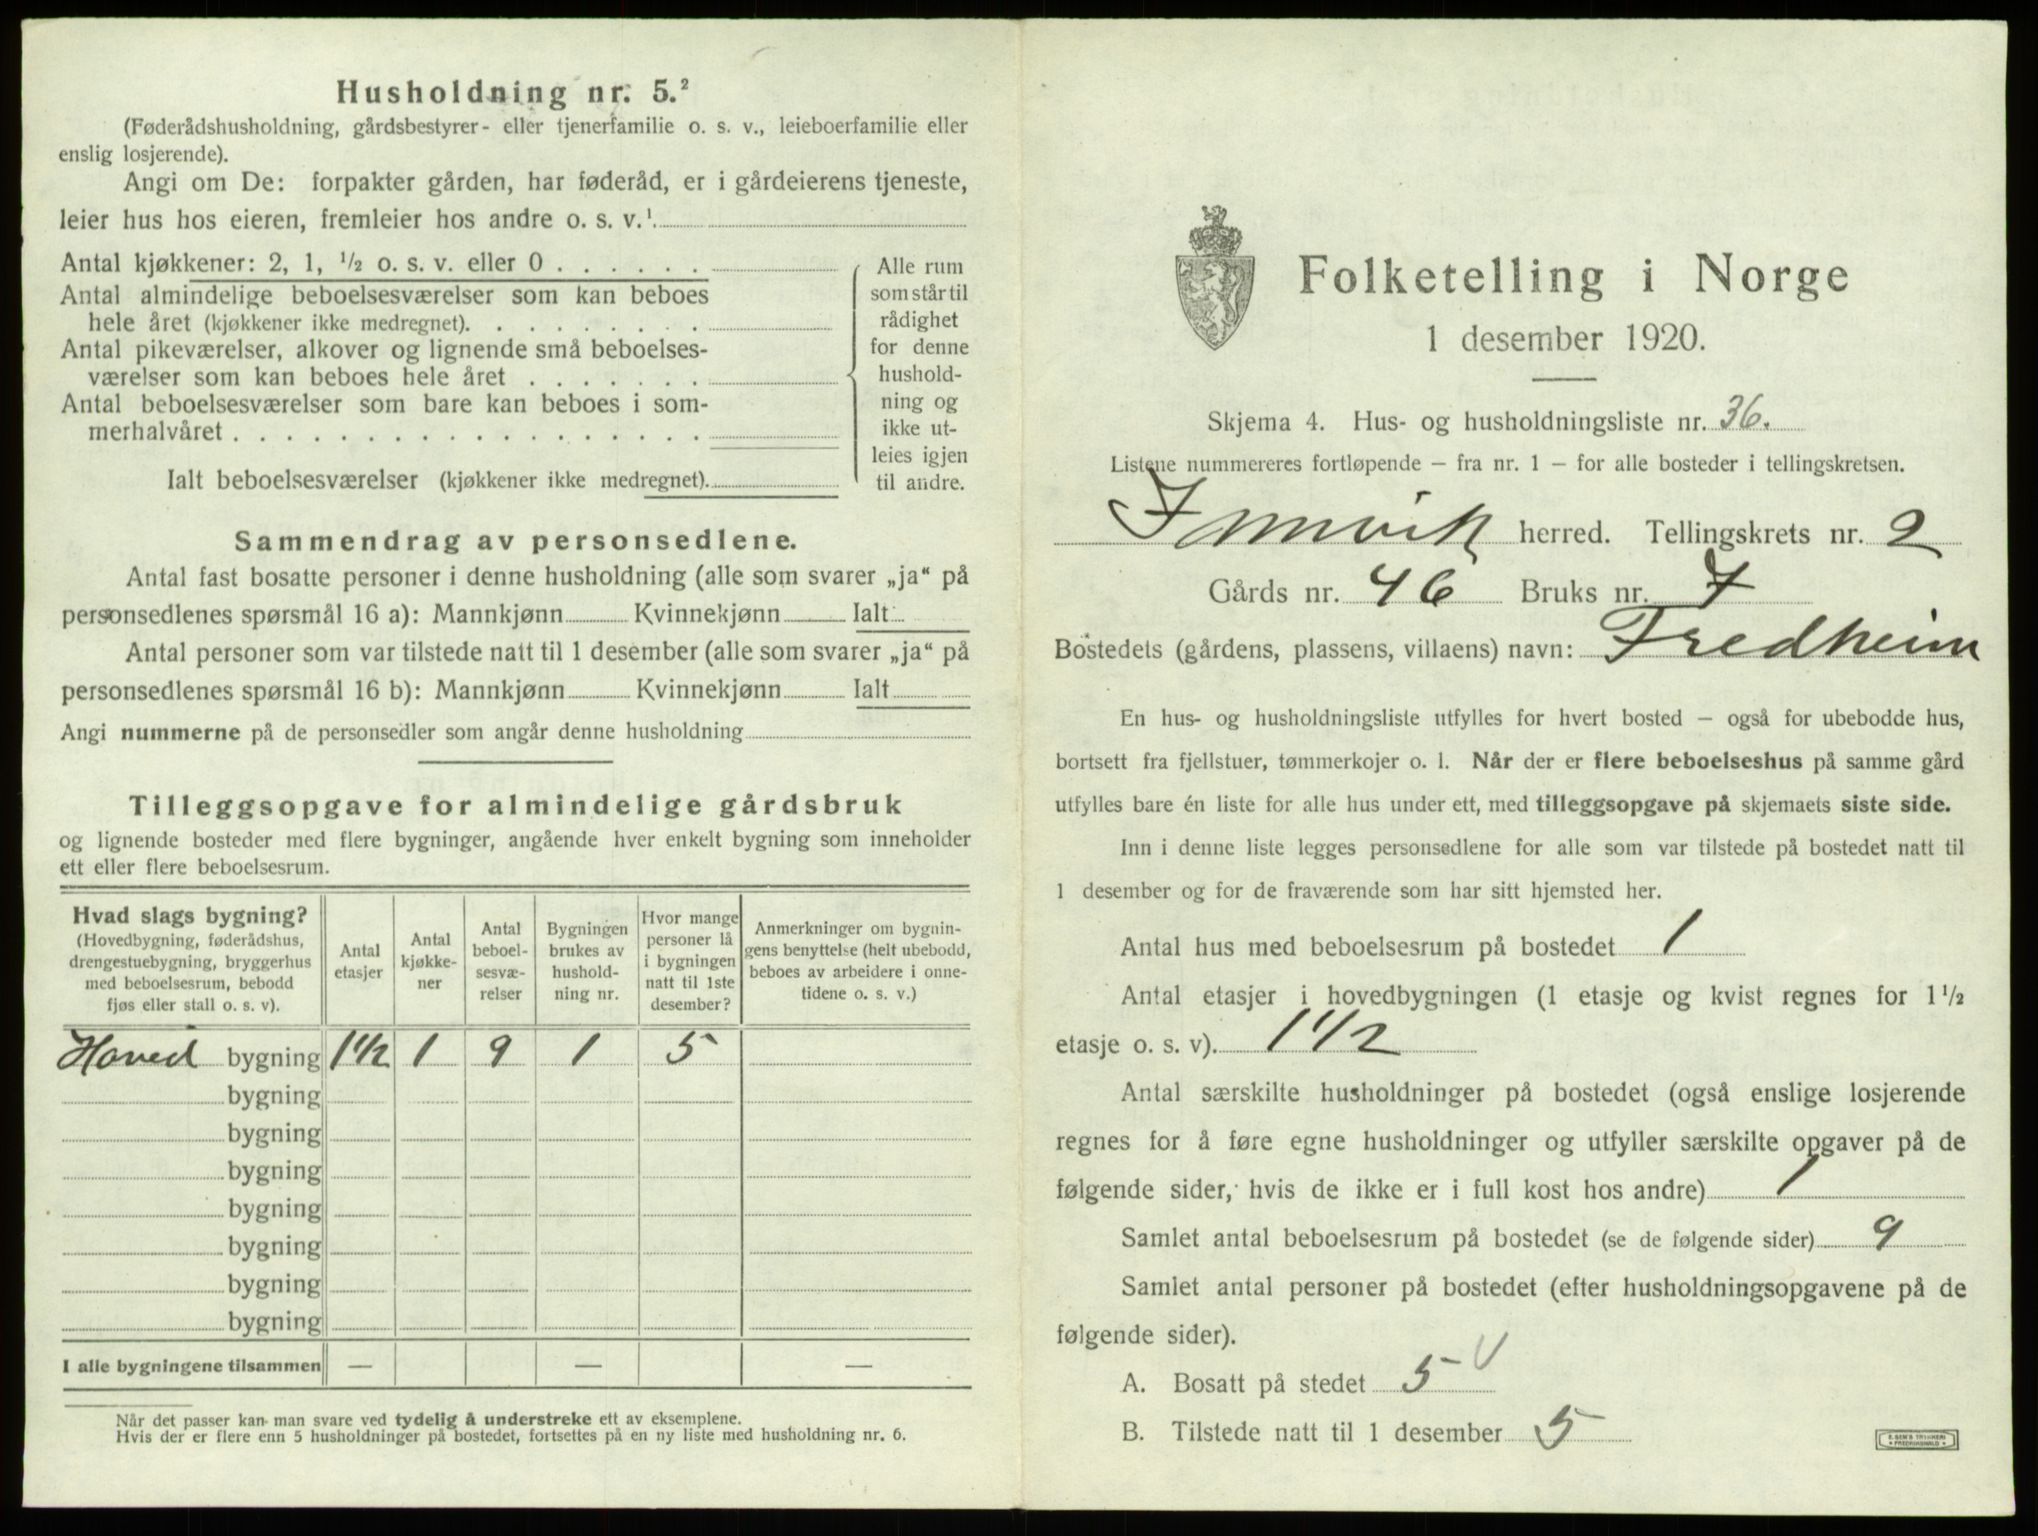 Husholdning nr. 5.²
(Føderådshusholdning, gårdsbestyrer- eller tjenerfamilie o. s. v., leieboerfamilie eller
enslig losjerende).
Angi om De: forpakter gården, har føderåd, er i gårdeierens tjeneste,
leier hus hos eieren, fremleier hos andre o. s. v.¹
Antal kjøkkener: 2, 1, ½ o. s. v. eller 0 . . . . . .
Antal almindelige beboelsesværelser som kan beboes
hele året (kjøkkener ikke medregnet). . . . . . . . .
Antal pikeværelser, alkover og lignende små beboelses-
værelser som kan beboes hele året . . . . . . .
Antal beboelsesværelser som bare kan beboes i som-
merhalvåret . . . . . . . . . . . . . . . . . .
Ialt beboelsesværelser (kjøkkener ikke medregnet).
Alle rum
som står til
rådighet
for denne
hushold-
ning og
ikke ut-
leies igjen
til andre.
Sammendrag av personsedlene.
Antal fast bosatte personer i denne husholdning (alle som svarer „ja“ på
personsedlenes spørsmål 16 a): Mannkjønn Kvinnekjønn Ialt
Antal personer som var tilstede natt til 1 desember (alle som svarer „ja“ på
personsedlenes spørsmål 16 b): Mannkjønn Kvinnekjønn Ialt
Angi nummerne på de personsedler som angår denne husholdning
Tilleggsopgave for almindelige gårdsbruk
og lignende bosteder med flere bygninger, angående hver enkelt bygning som inneholder
ett eller flere beboelsesrum.
Hvad slags bygning?
(Hovedbygning, føderådshus,
drengestuebygning, bryggerhus
med beboelsesrum, bebodd
fjøs eller stall o. s. v).
Antal
etasjer
Antal
kjøkke-
ner
Antal
beboel-
sesvæ-
relser
Bygningen
brukes av
hushold-
ning nr.
Hvor mange
personer lå
i bygningen
natt til 1ste
desember?
Anmerkninger om bygnin-
gens benyttelse (helt ubebodd,
beboes av arbeidere i onne-
tidene o. s. v.)
Hoved bygning 1½ 1 9 1 5
bygning
bygning
bygning
bygning
bygning
bygning
bygning
I alle bygningene tilsammen — — —
Når det passer kan man svare ved tydelig å understreke ett av eksemplene.
Hvis der er flere enn 5 husholdninger på bostedet, fortsettes på en ny liste med husholdning nr. 6.
Folketelling i Norge
1 desember 1920.
Skjema 4. Hus- og husholdningsliste nr. 36.
Listene nummereres fortløpende – fra nr. 1 – for alle bosteder i tellingskretsen.
Innvik herred. Tellingskrets nr. 2
Gårds nr. 46 Bruks nr. 7
Bostedets (gårdens, plassens, villaens) navn: Fredheim
En hus- og husholdningsliste utfylles for hvert bosted – også for ubebodde hus,
bortsett fra fjellstuer, tømmerkojer o. l. Når der er flere beboelseshus på samme gård
utfylles bare én liste for alle hus under ett, med tilleggsopgave på skjemaets siste side.
Inn i denne liste legges personsedlene for alle som var tilstede på bostedet natt til
1 desember og for de fraværende som har sitt hjemsted her.
Antal hus med beboelsesrum på bostedet 1
Antal etasjer i hovedbygningen (1 etasje og kvist regnes for 1½
etasje o. s. v). 1½
Antal særskilte husholdninger på bostedet (også enslige losjerende
regnes for å føre egne husholdninger og utfyller særskilte opgaver på de
følgende sider, hvis de ikke er i full kost hos andre) 1
Samlet antal beboelsesrum på bostedet (se de følgende sider) 9
Samlet antal personer på bostedet (efter husholdningsopgavene på de
følgende sider).
A. Bosatt på stedet 5 V
B. Tilstede natt til 1 desember 5